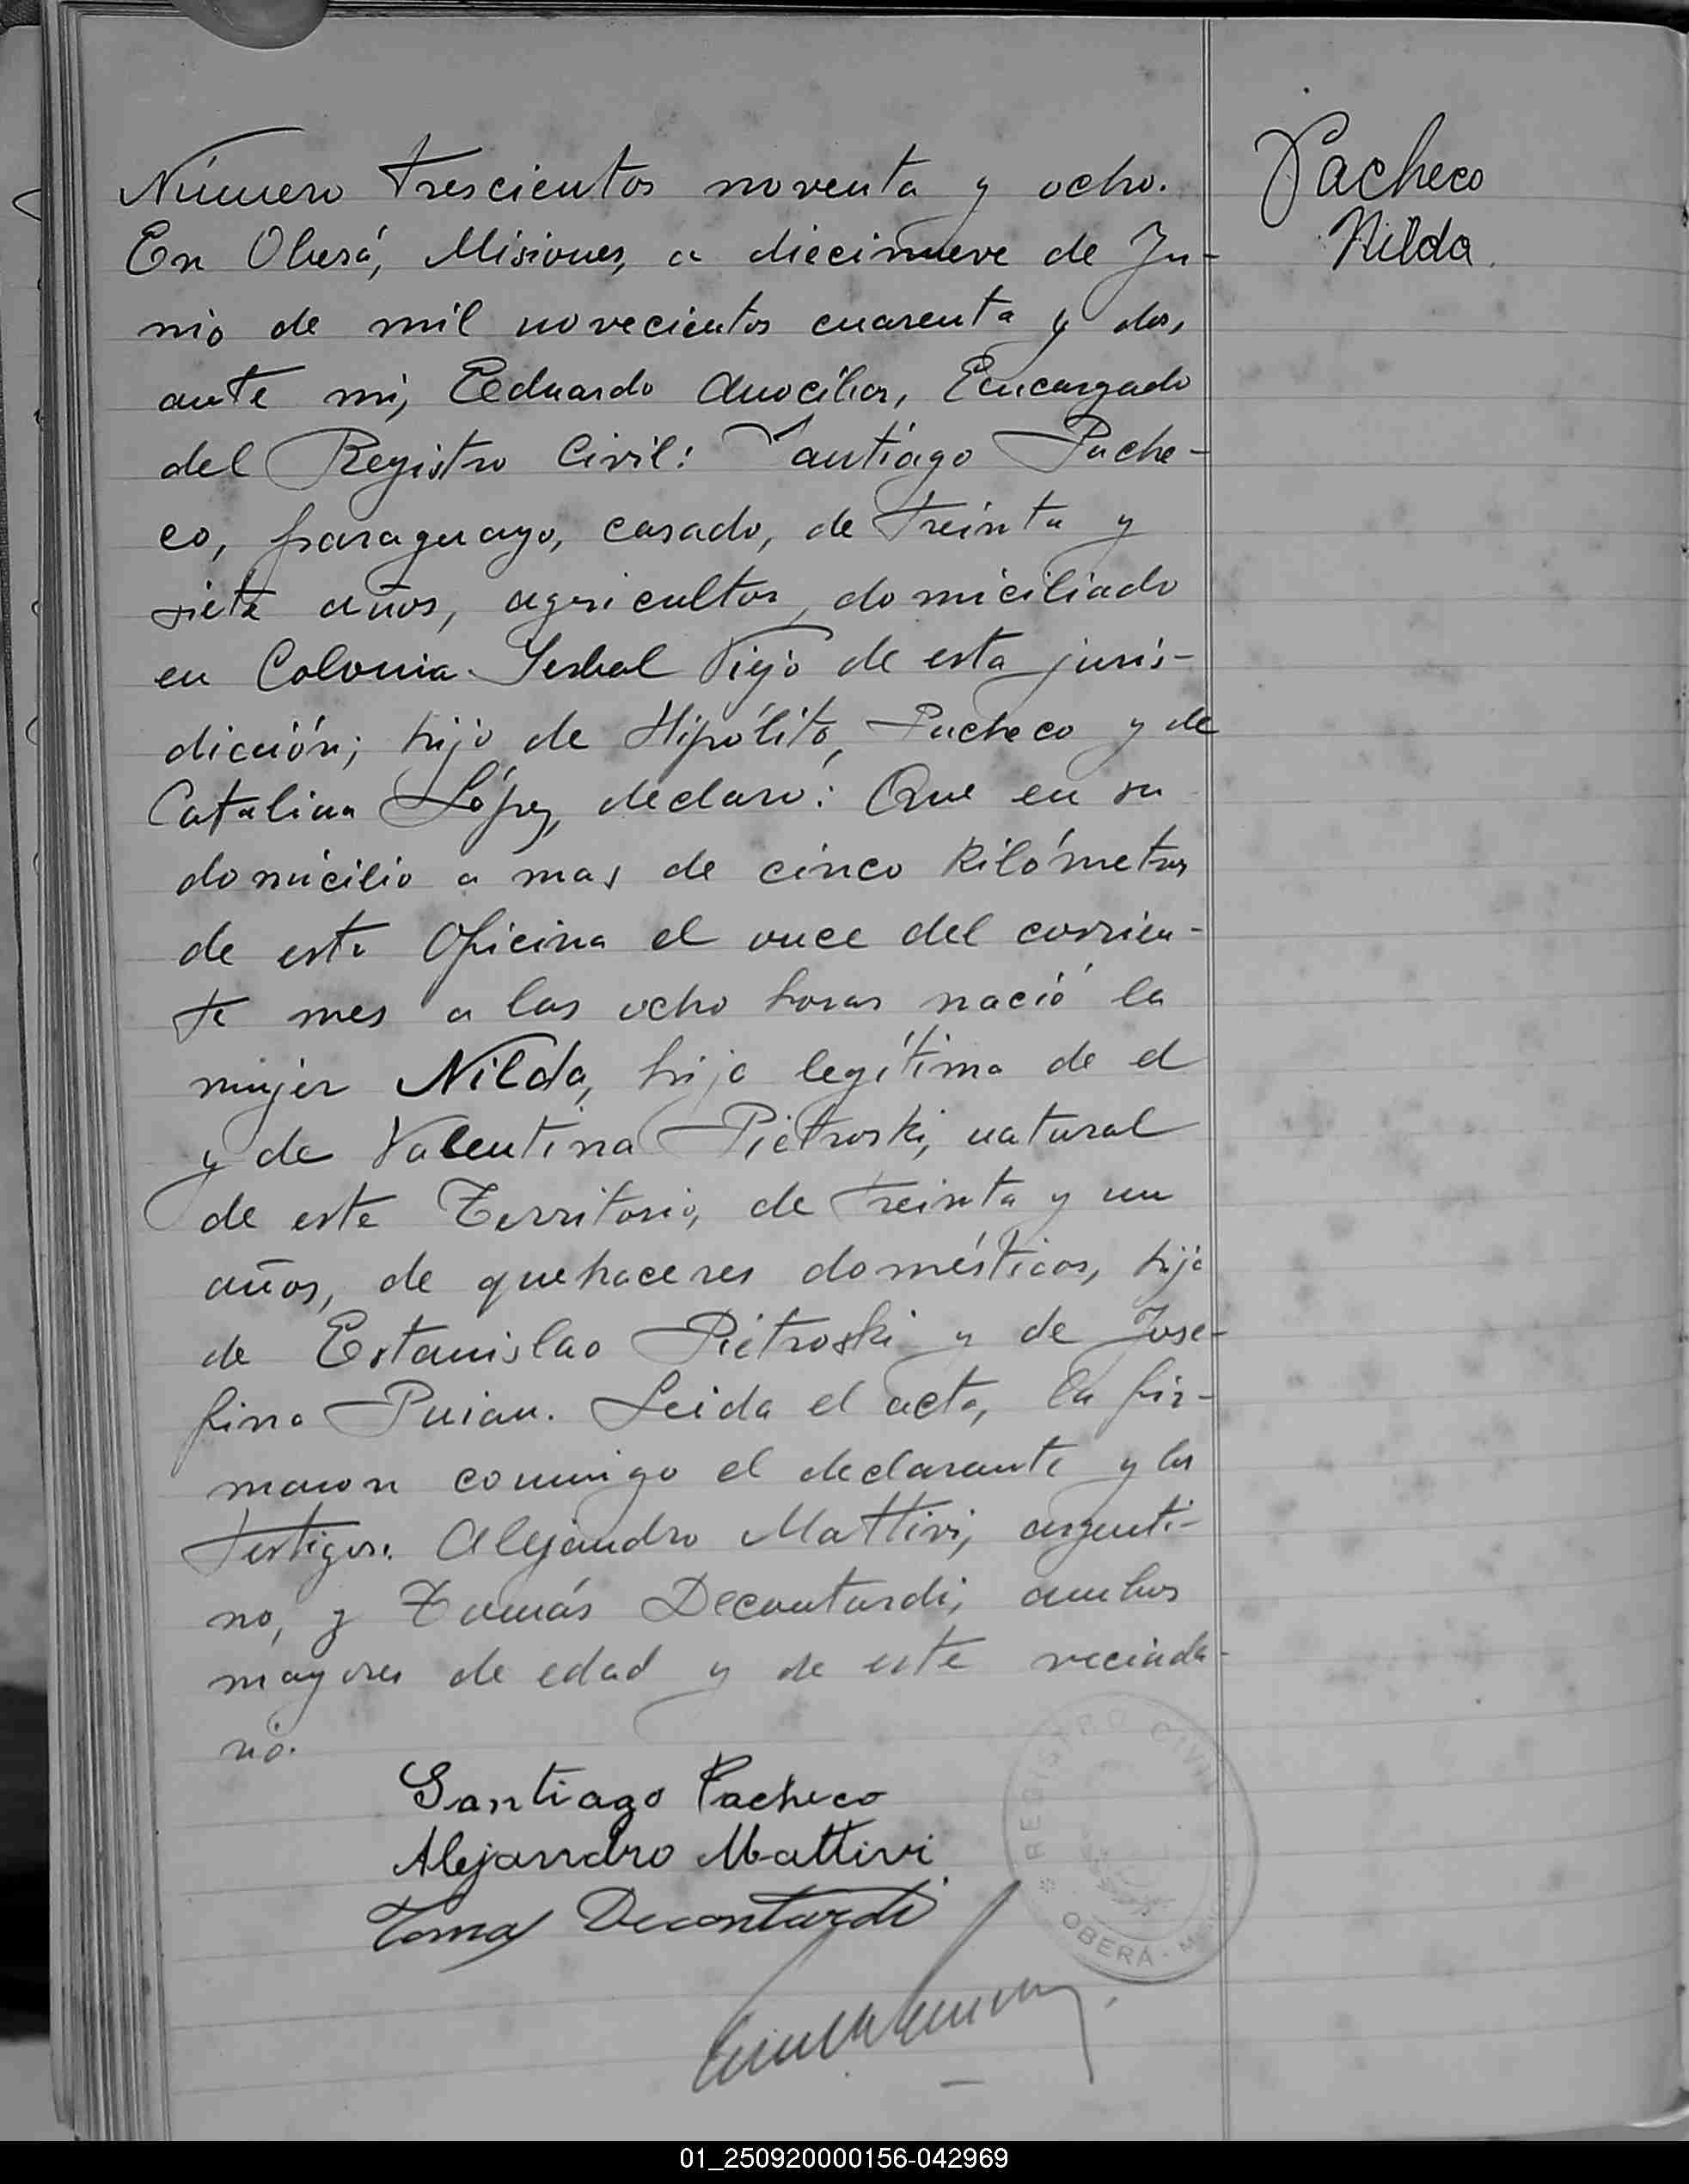 Pacheco
Nilda.
Número trescientos noventa y ocho.
En Oberá, Misiones, a diecinueve de Ju-
nio de mil novecientos cuarenta y dos,
ante mi, Eduardo Encargado
del Registro Civil: Santiago Pache-
co, paraguayo, casado, de treinta y
siete años, agricultor, domiciliado
en Colonia Yerbal Viejo de esta juris-
dicción; hijo de Hipólito Pacheco y de
Catalina López, declaró: Que en su
domicilio a mas de cinco kilómetros
de esta Oficina el once del corrien-
te mes a las ocho horas nació la
mujer Nilda, hija legítima de el
y de Valentina Pietroski, natural
de este Territorio, de treinta y un
años, de quehaceres domésticos, hija
de Estanislao Pietroski y de Jose-
fina Puian. Leida el acta, la fir-
maron conmigo el declarante y los
testigos: Alejandro Mattivi, argenti-
no, y Tomás Decontardi, ambos
mayores de edad y de este vecinda-
rio.
Santiago Pacheco
Alejandro Mattivi
Tomas Decontardi
REGISTRO CIVIL
OBERÁ -
01_250920000156-042969